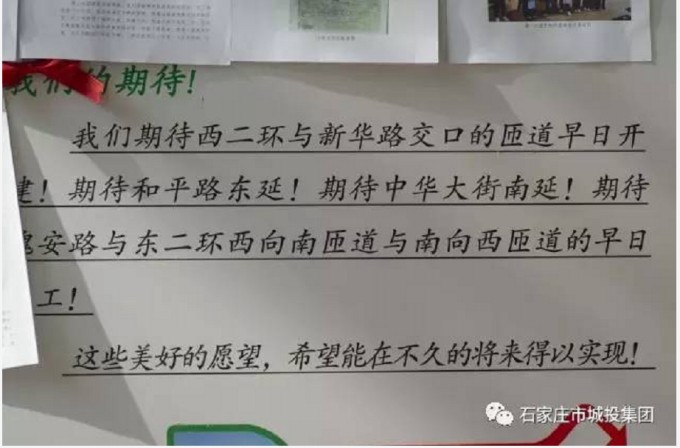 我们的期待!
我们期待西二环与新华路交口的匝道早日开
建！期待和平路东延！期待中华大街南延！期待
安路与东二环西向南匝道与南向西匝道的早日
工！
这些美好的愿望，希望能在不久的将来得以实现！
石家庄市城投集团